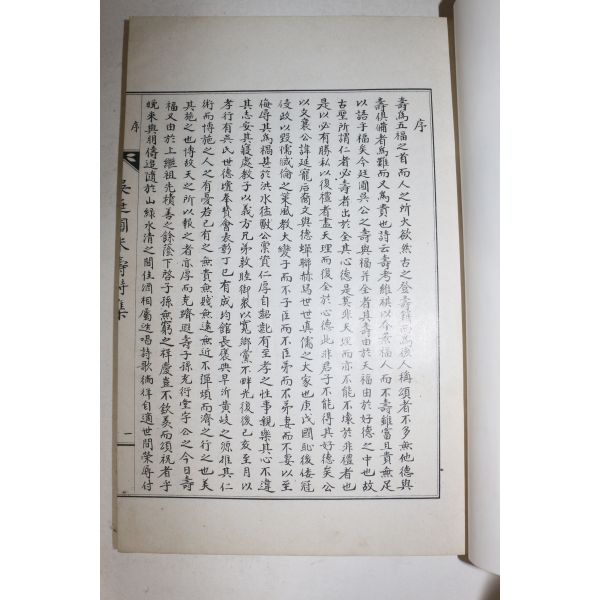 序
壽爲五福之首而人之所大欲然古之登壽籍而爲後人稱頌者不多無他德與
壽俱備者爲難而又爲貴也詩云壽考維祺以介景福人而不壽雖富且貴無足
以語于福矣今廷圖吳公之壽與福并全者其壽由於天福由於好德之中也故
古聖所謂仁者必壽者出於全其心德是莫非天理而亦不能不壞於非禮者也
是以必有勝私以復禮者盡天理而復全於心德此非君子不能得其好德矣公
以文襄公諱延寵后裔文與德蟬聯赫舃世世眞儒之大家也庚戌國恥後倭冠
侵政以毀儒滅倫之策風教大變子而不子臣而不臣弟而不弟妻而不妻以至
侮辱其爲禍甚於洪水猛獸公稟資仁厚自齠齔有至孝之性事親樂其心不違
其志安其寢處教子以義方兄弟敦睦御衆以寬鄉黨不畔光復後己亥至月以
孝行有吳氏世德遺奉贊會表彰丁巳有成均館長褒典早沂黃岐之源推其仁
術而博施之人之有憂若己有之無貴無賤無遠無近不憚煩而濟之行之也美
其施之也博故天之所以報之者亦厚而克躋遐壽子孫克衍堂宇公之今日壽
福又由於上繼祖先積善之餘蔭下啓子孫無窮之祥慶豈不欽羨而頌祝者乎
晩來與朋儔追隨於山綠水清之間佳酒相屬迭唱詩歌徜徉自適世間榮辱付
序
吳廷圖朱壽詩集
一